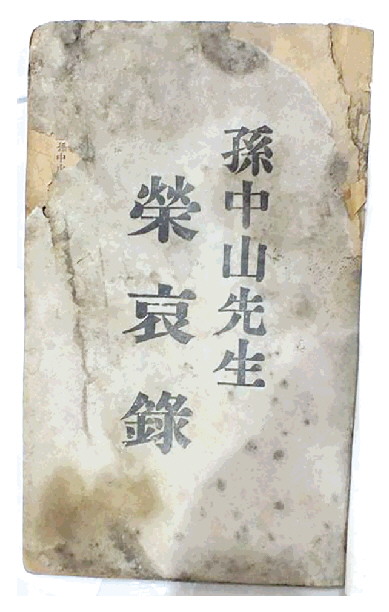 孫中山先生
榮哀錄
孫中